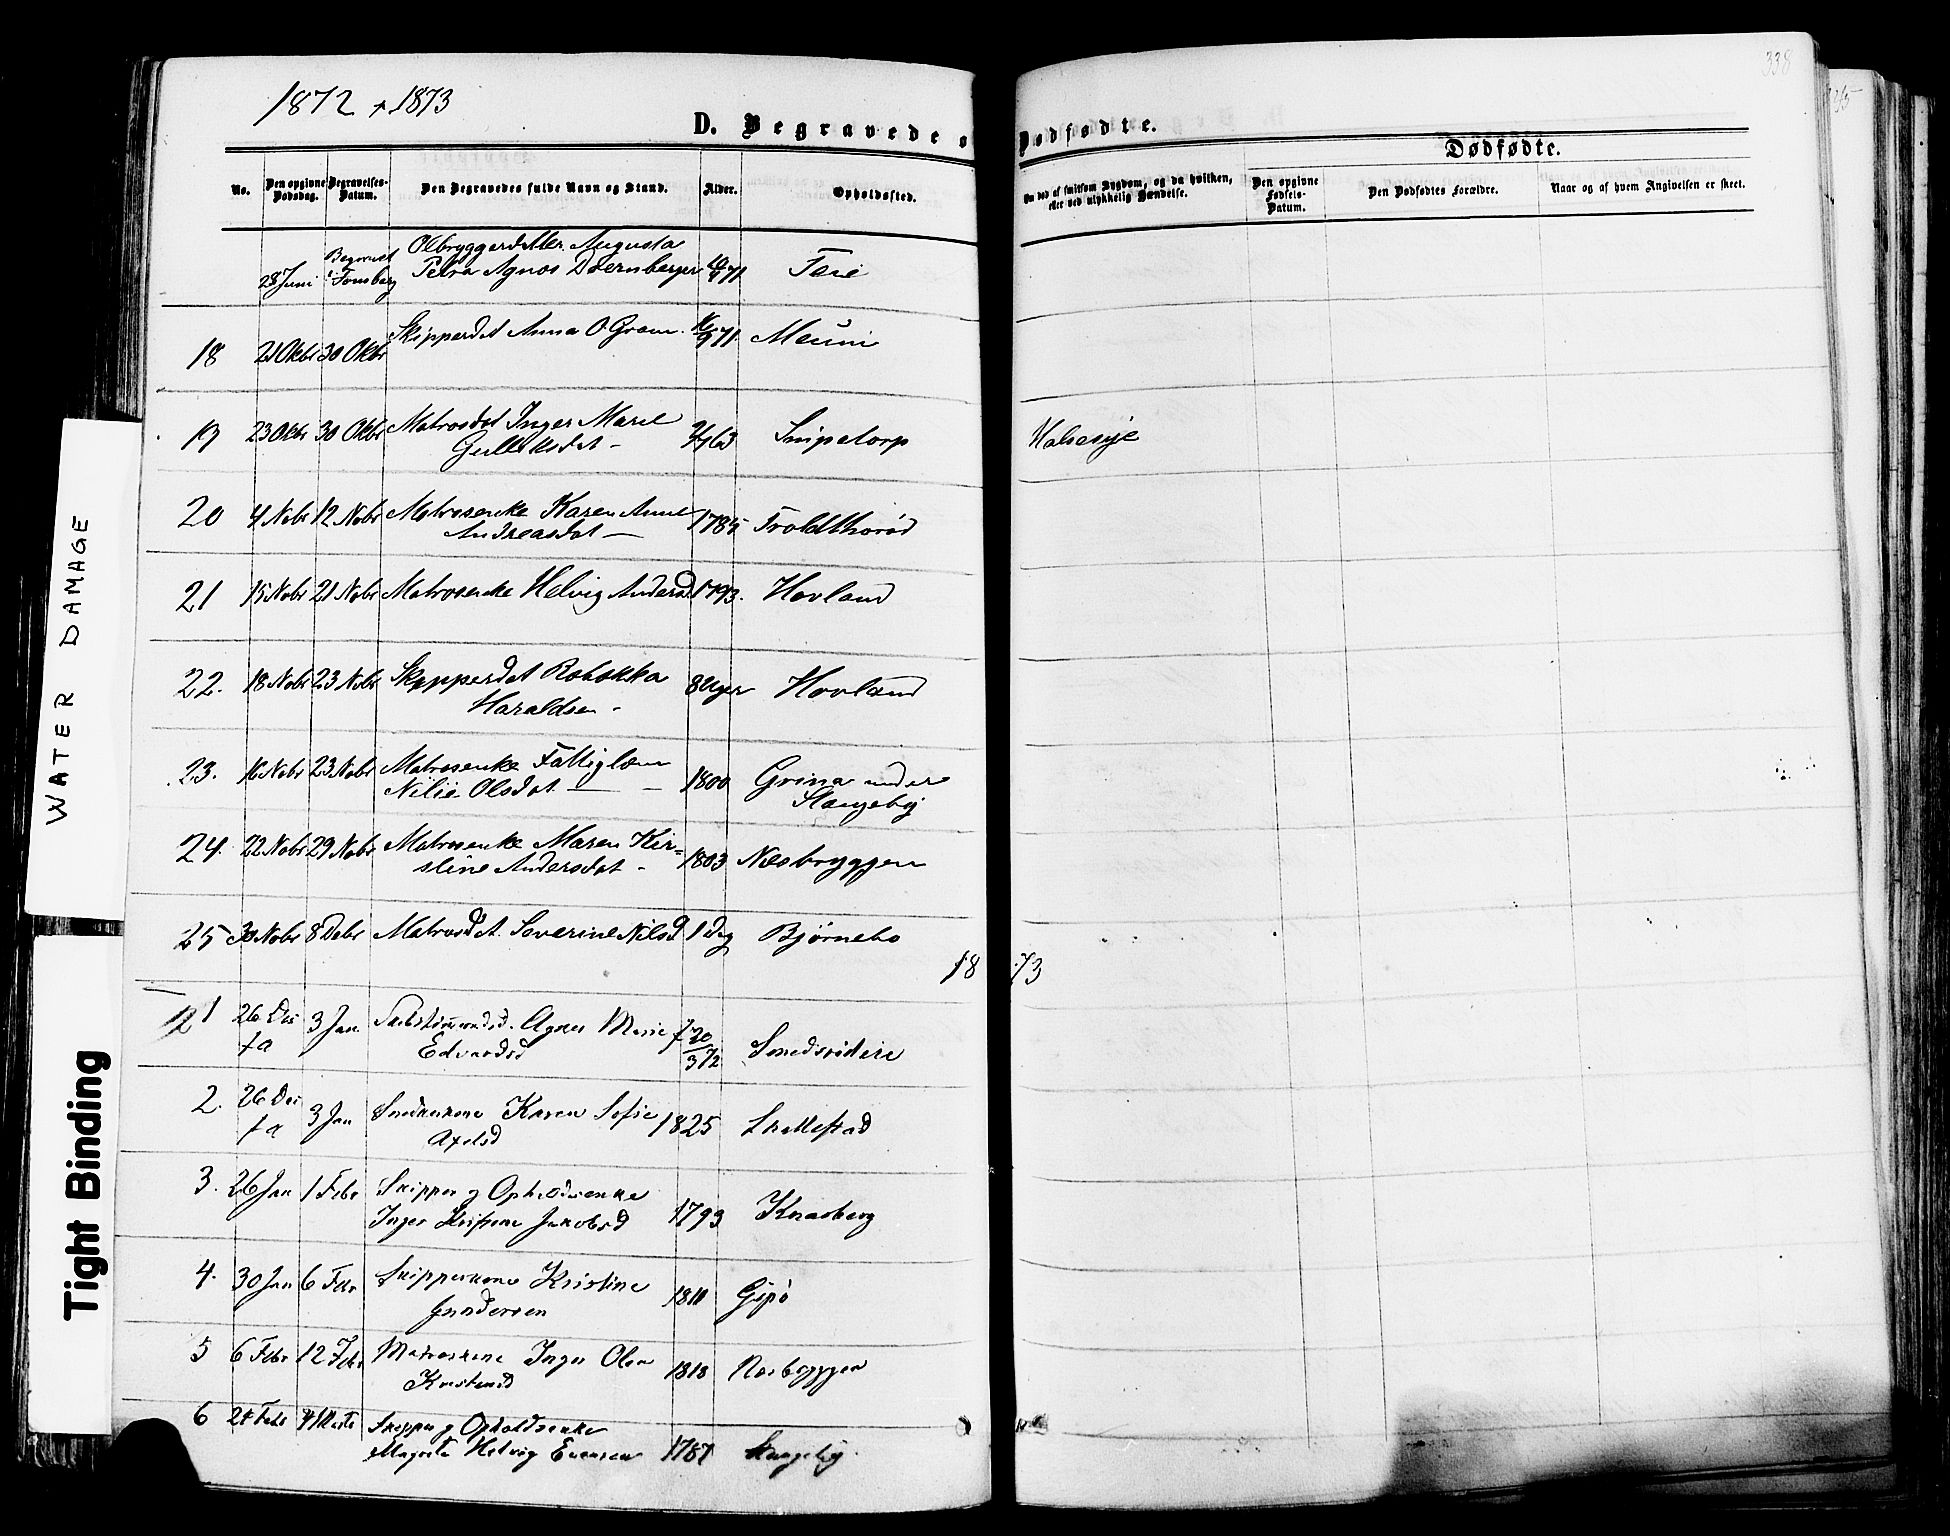 1872 + 1873
338
D. Begravede o Dødfødte.
Dødfødte.
No.
Den opgivne Dødsdag.
Begravelses-Datum.
Den Begravedes fulde Navn og Stand.
Alder.
Opholdssted.
Om død af smitsom Sygdom, og da hvilken, eller ved ulykkelig Hændelse.
Den opgivne Fødsels-Datum.
Den Dødfødtes Forældre.
Naar og af hvem Angivelsen er skeet.
28 Juni Begravet i Tønsberg Ølbryggerdatter Augusta
Petra Agnes Doernberger 71 Teie
18 21 Okbr 30 Okbr Skipperdat Anna O Gram 71
19 23 Okbr 30 Okbr Matrosdat Inger Marie
Gulliksdat - 63 Snipetorp Halsesyge
20 4 Nobr 12 Nobr Matrosenke Karen Anne
Andreasdat — 1785 Troldthorød
21 15 Nobr 21 Nobr Matrosenke Helvig Andersd 1793. Hovland
22. 18 Nobr 23 Nobr Skipperdat Rebekka
Haraldsen - 8 Uger Hovland
23. 16 Nobr 23 Nobr Matrosenke Fattiglem
Nilia Olsdat — — 1800 Grina under
Slangeby
24. 22 Nobr 29 Nobr Matrosenke Maren Kir=
stine Andersdat - 1803 Nesbryggen
25 30 Nobr 8 Debr Matrosdt. Severine Nilsd 1 dag Bjørnebo
1873
1 26 Des 3 Jan Agnes Marie
f a Edvardsd 20/3 72 Smedsrødeie
2. 26 Des 3 Jan Snedkerkone Karen Sofie
f a Axelsd 1825
3. 26 Jan 1 Febr Skipper og Opholdsenke
Inger Jakobsd 1793 Knarberg
4. 30 Jan 6 Febr Skipperkone Kristine
Gundersen Gipø
5 6 Febr 12 Febr Matroskone Inger Olea
Kristensd 1818 Nesbryggen
6 24 Febr 4 Marts Skipper og Opholdsenke
Magreta Helvig Evensen 1787 Slangeby.
WATER DAMAGE
Tight Binding